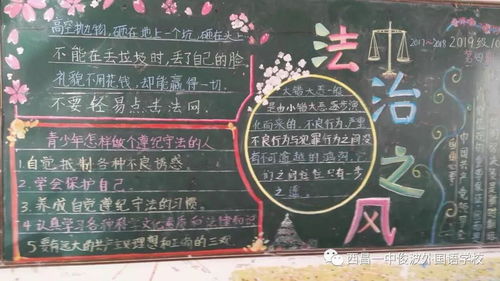 高空抛物，砸在地上一个坑，砸在头上
不能在丢垃圾时，丢了自己的脸
礼貌不用花钱，却能赢得一切.
不要轻易点击法网.
青少年怎样做个遵纪守法的人
1.自觉抵制各种不良诱惑.
2.学会保护自己
3.养成自觉遵纪守法的习惯.
4.认真学习各种科学文化素质和法律知识
5.要有远大的共产主义理想和正确的三观
法治之风
大错大恶一般
是由小错小恶逐步演
化而来的,不良行为,严重
不良行为与犯罪行为之间没
有不可逾越的鸿沟,它
们之间往往只有一步
之遥.
2017~2018
2019级
中国共产党
西昌一中俊波外国语学校